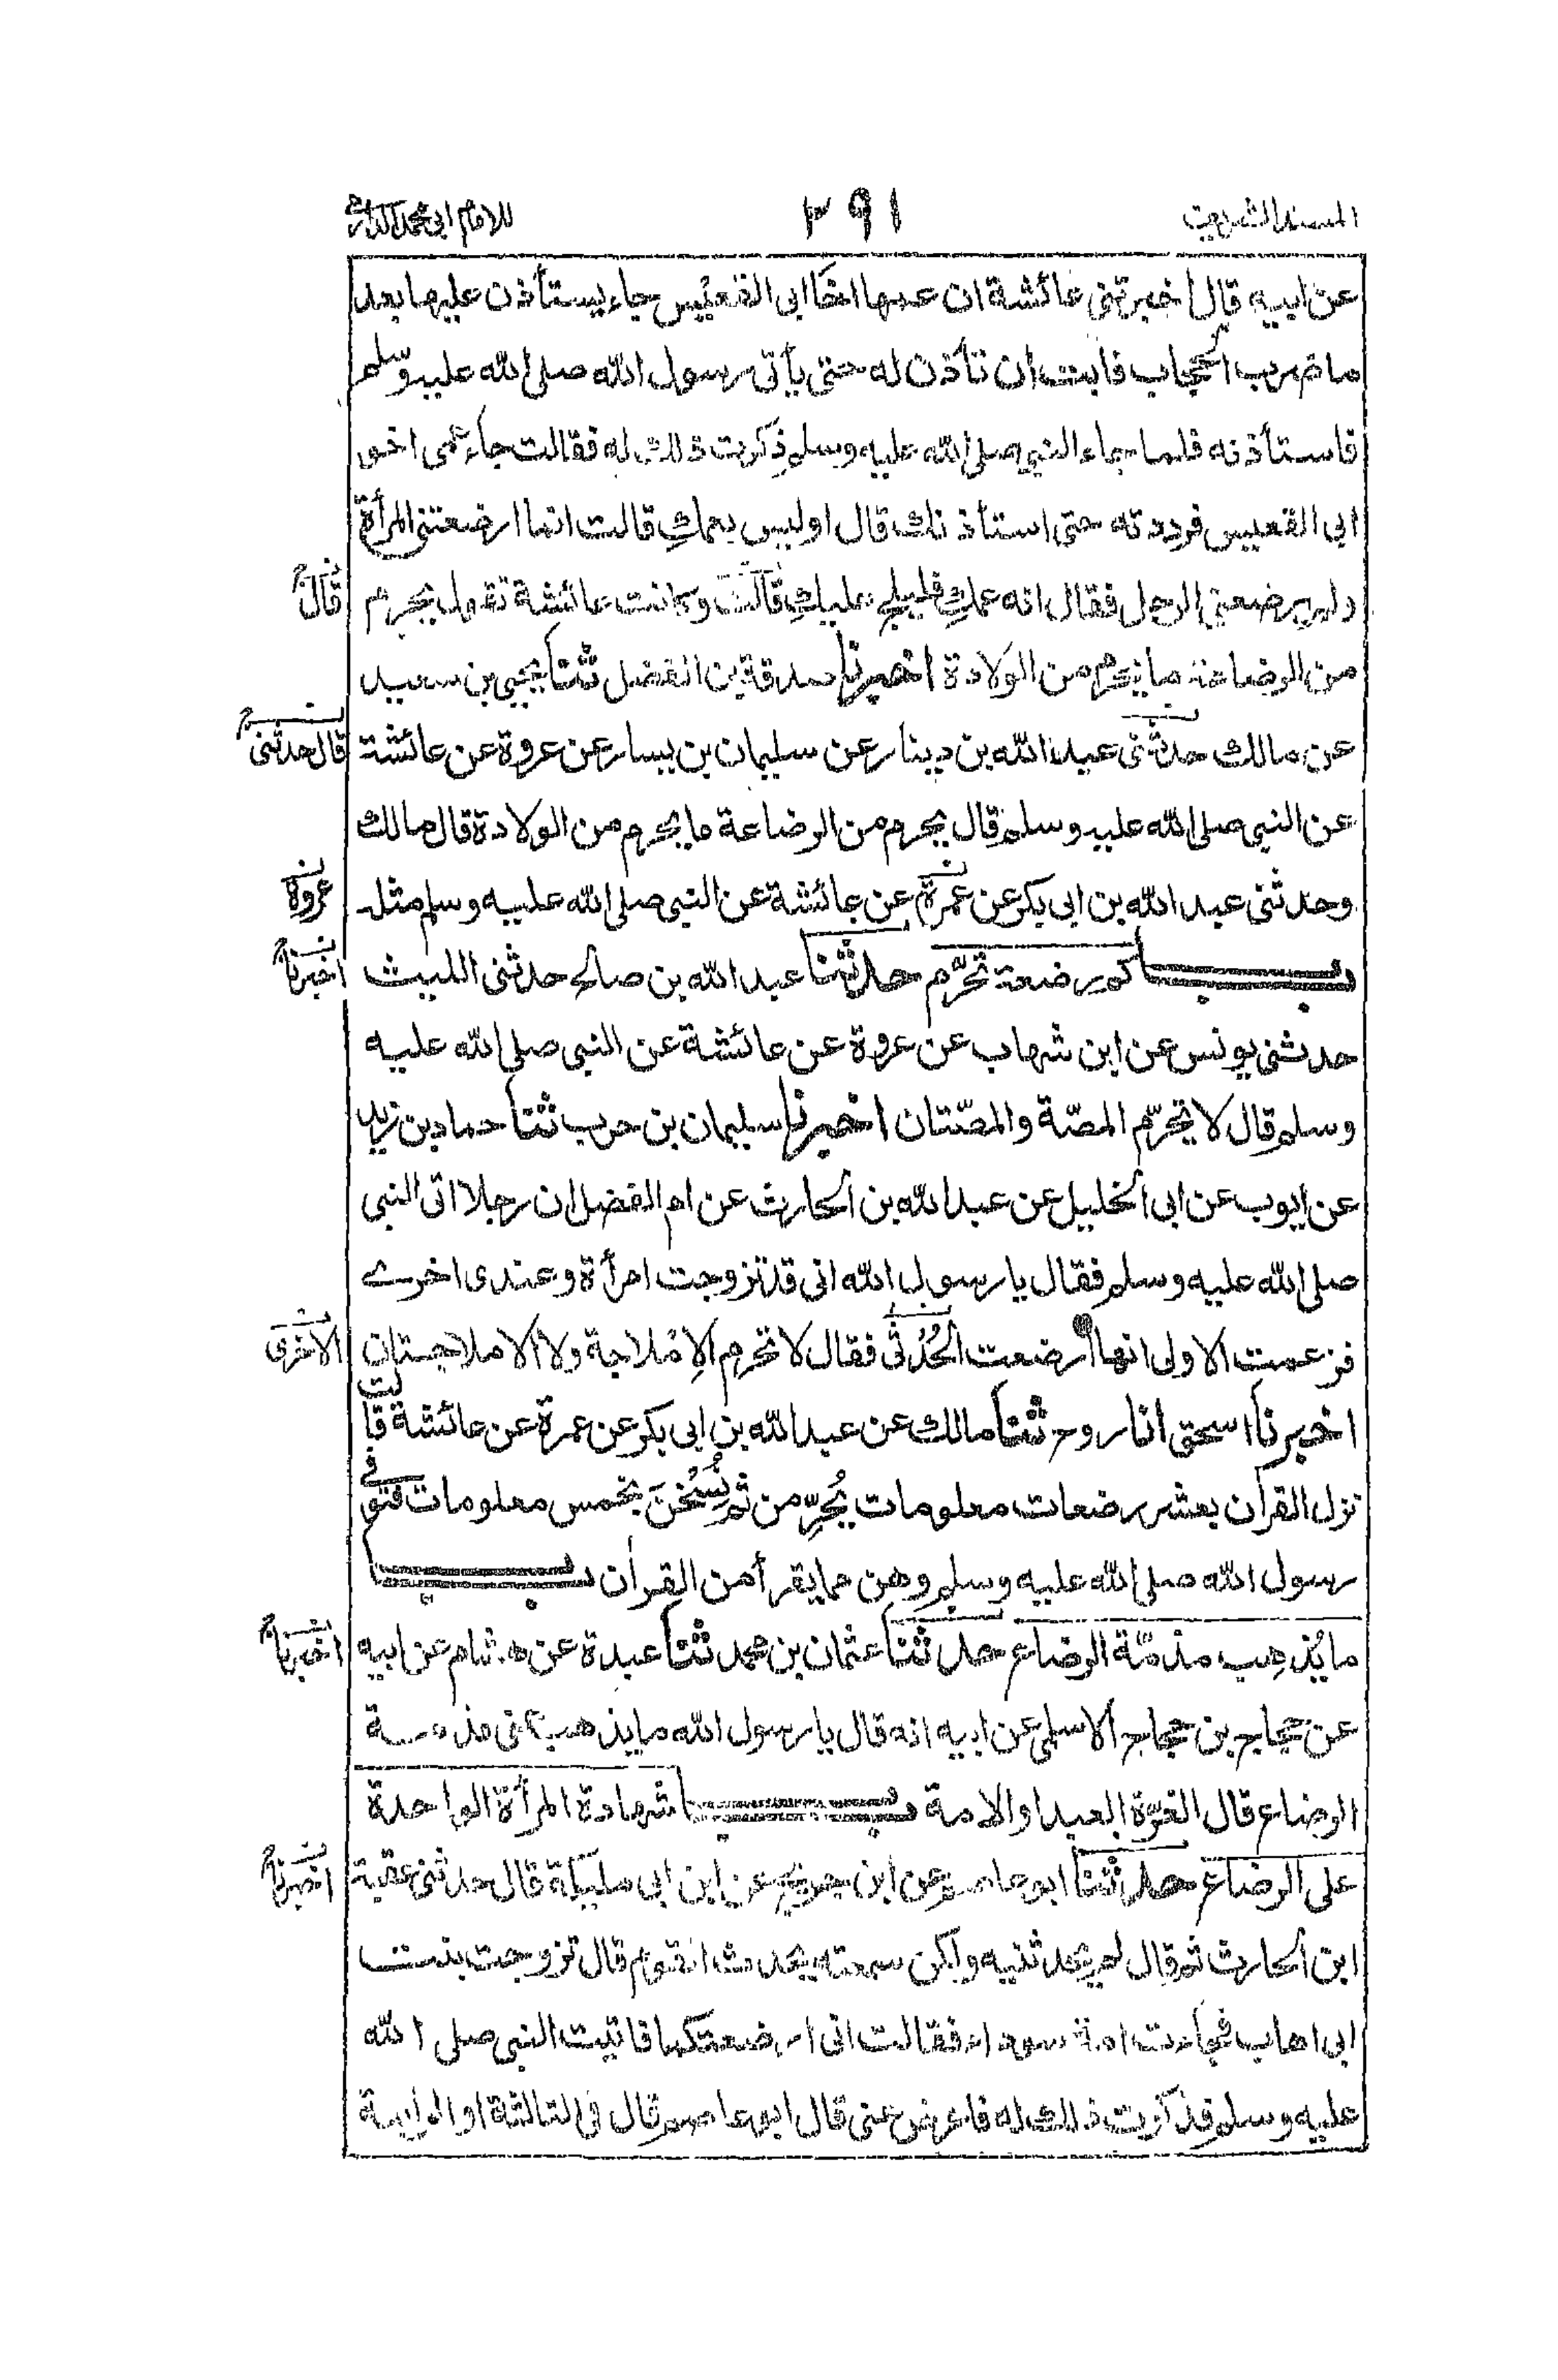 المسند الشريف
٢٩١
للامام ابی محمد الدارمی
عن ابيه قال اخبرتنی عائشة ان عمها اخا ابی القُعَيس جاء يستأذن عليها بعد
ما ضرب الحجاب فابت ان تأذن له حتى يأتی رسول الله صلى الله عليه وسلم
فاستأذنه فلما جاء النبی صلى الله عليه وسلم ذكرت ذلك له فقالت جاء عمی اخو
ابی القعيس فرددته حتى استأذنك قال اوليس بعمكِ قالت انما ارضعتنی المرأة
ولم يرضعنی الرجل فقال انه عمكِ فليلج عليكِ قالت وكانت عائشة تقول يحرم
قال
من الرضاعة ما يحرم من الولادة اخبرنا صدقة بن الفضل ثنا يحيى بن سعيد
عن مالك حدثنی عبد الله بن دينار عن سليمان بن يسار عن عروة عن عائشة
قال حدثنی
عن النبی صلى الله عليه وسلم قال يحرم من الرضاعة ما يحرم من الولادة قال مالك
وحدثنی عبد الله بن ابی بكر عن عمرة عن عائشة عن النبی صلى الله عليه وسلم مثله
عروة
باب كم رضعة تحرّم حدثنا عبد الله بن صالح حدثنی الليث
اخبرنا
حدثنی يونس عن ابن شهاب عن عروة عن عائشة عن النبی صلى الله عليه
وسلم قال لا تحرّم المصّة والمصّتان اخبرنا سليمان بن حرب ثنا حماد بن زيد
عن ايوب عن ابی الخليل عن عبد الله بن الحارث عن ام الفضل ان رجلا اتى النبی
صلى الله عليه وسلم فقال يا رسول الله انی قد تزوجت امرأة وعندی اخرے
فزعمت الاولى انها ارضعت الحُدثى فقال لا تحرم الاِملاجة ولا الاملاجتان
الاخرى
اخبرنا اسحق انا روح ثنا مالك عن عبد الله بن ابی بكر عن عمرة عن عائشة قالت
نزل القرآن بعشر رضعات معلومات يُحرّمن ثم نُسُخنَ بخمس معلومات فتوفی
رسول الله صلى الله عليه وسلم وهن مما يقرأ من القرآن باب
ما يُذهِب مذمّة الرضاع حدثنا عثمان بن محمد ثنا عبدة عن هشام عن ابيه
اخبرنا
عن حجاج بن حجاج الاسلمی عن ابيه انه قال يا رسول الله ما يذهب عنی مذمة
الرضاع قال الغرّة العبد او الامة باب شهادة المرأة الواحدة
على الرضاع حدثنا ابو عاصم عن ابن جريج عن ابن ابی مليكة قال حدثنی عقبة
اخبرنا
ابن الحارث ثم قال لم يحدثنيه ولكن سمعته يحدث القوم قال تزوجت بنت
ابی اهاب فجاءت امة سوداء فقالت انی ارضعتكما فاتيت النبی صلى الله
عليه وسلم فذكرت ذلك له فاعرض عنی قال ابو عاصم قال فی الثالثة او الرابعة